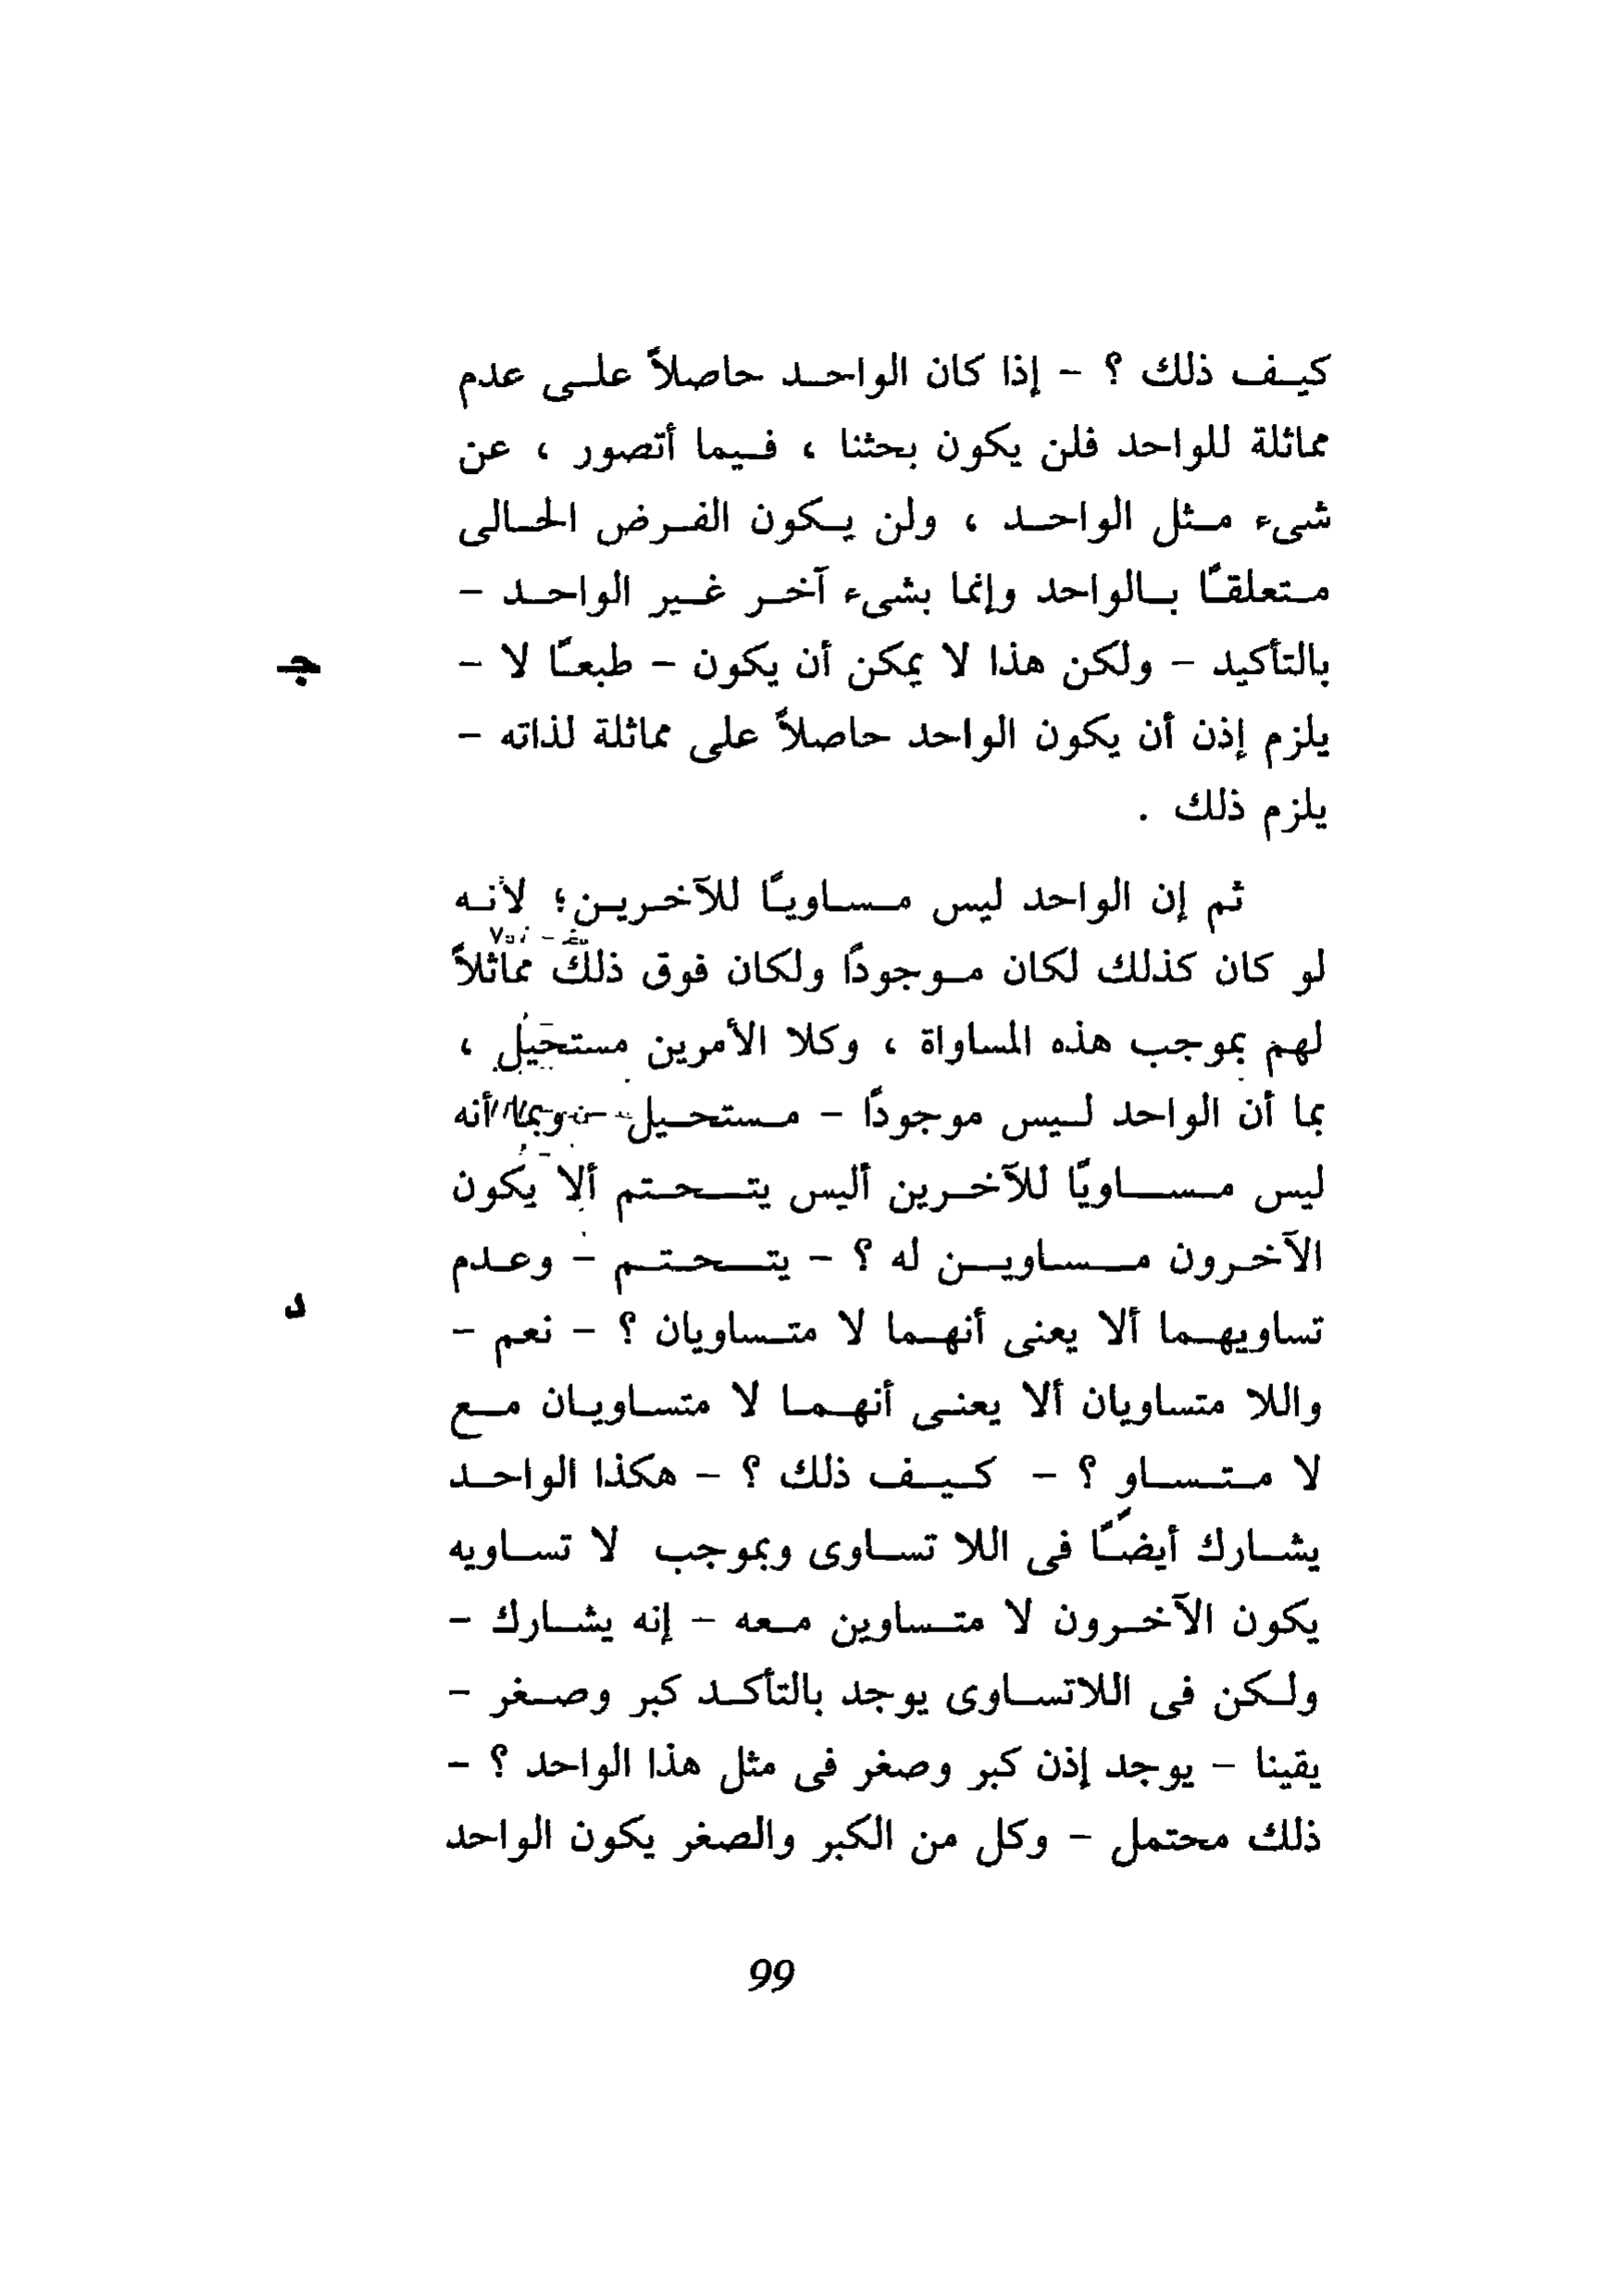 كيف ذلك ؟ - إذا كان الواحد حاصلاً على عدم
مماثلة للواحد فلن يكون بحثنا ، فيما أتصور ، عن
شىء مثل الواحد ، ولن يكون الفرض الحالى
متعلقًا بالواحد وإنما بشىء آخر غير الواحد -
جـ
بالتأكيد - ولكن هذا لا يمكن أن يكون - طبعًا لا -
يلزم إذن أن يكون الواحد حاصلاً على مماثلة لذاته -
يلزم ذلك .
ثم إن الواحد ليس مساويًا للآخرين؛ لأنه
لو كان كذلك لكان موجودًا ولكان فوق ذلك مماثلاً
لهم بموجب هذه المساواة ، وكلا الأمرين مستحيل ،
بما أن الواحد ليس موجودًا - مستحيل - وبما أنه
ليس مساويًا للآخرين أليس يتحتم ألا يكون
الآخرون مساوين له ؟ - يتحتم - وعدم
د
تساويهما ألا يعنى أنهما لا متساويان ؟ - نعم -
واللا متساويان ألا يعنى أنهما لا متساويان مع
لا متساو ؟ - كيف ذلك ؟ - هكذا الواحد
يشارك أيضًا فى اللا تساوى وبموجب لا تساويه
يكون الآخرون لا متساوين معه - إنه يشارك -
ولكن فى اللاتساوى يوجد بالتأكد كبر وصغر -
يقينا - يوجد إذن كبر وصغر فى مثل هذا الواحد ؟ -
ذلك محتمل - وكل من الكبر والصغر يكون الواحد
99